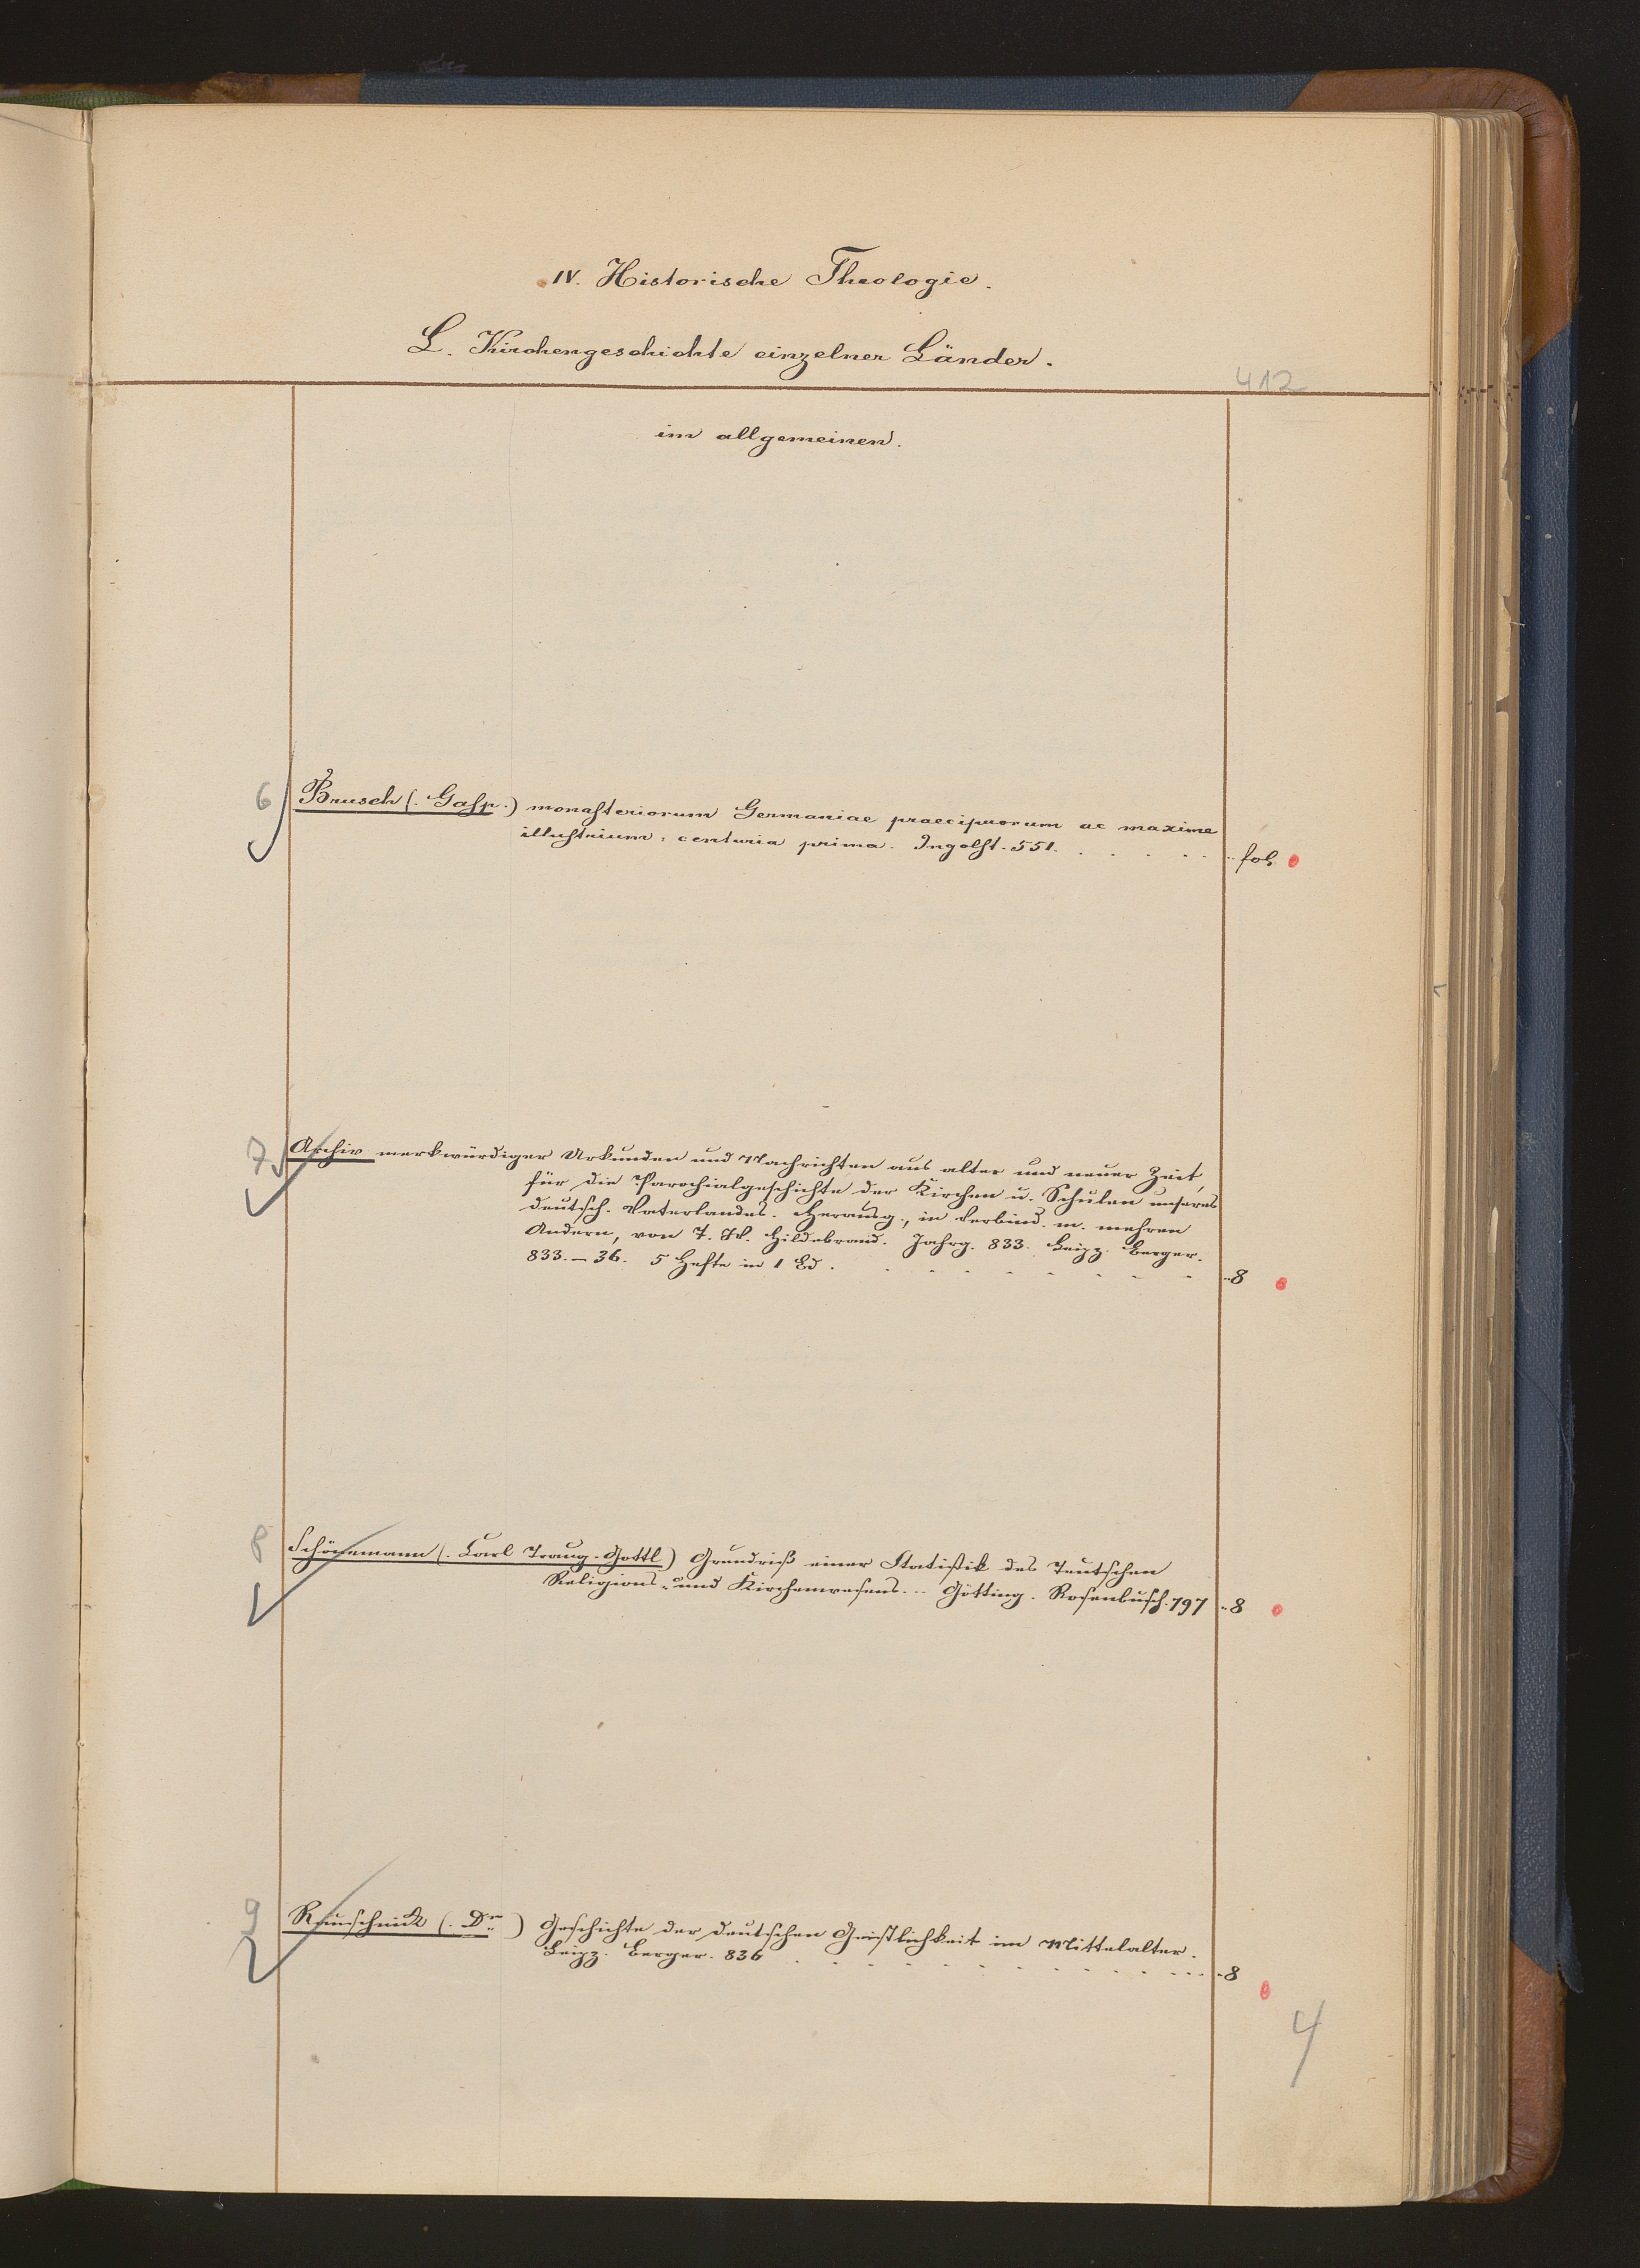 IV. Historische Theologie.
L. Kirchengeschichte einzelner Länder.
412
im allgemeinen.
6 Brusch (. Gasp.) monasteriorum Germaniae praecipuorum ac maxime
illustrium: centuria prima. Ingolst. 551. . . . . . fol.
7 Archiv merkwürdiger Urkunden und Nachrichten aus alter und neuer Zeit,
für die Parochialgeschichte der Kirchen u. Schulen unseres
deutsch. Vaterlandes. Herausg., in Verbind. m. mehren
Andern, von T. W. Hildebrand. Jahrg. 833. Leipz. Berger.
833. – 36. 5 Hefte in 1 Bd. . . . . . . . . 8
8 Schönemann (. Carl Traug. Gottl.) Grundriß einer Statistik des Teutschen
Religions- und Kirchenwesens... Götting. Rosenbusch. 797 .. 8
9 Rauschnick (. Dr.) Geschichte der deutschen Geistlichkeit im Mittelalter.
Leipz. Berger. 836 . . . . . . . . . . 8
4